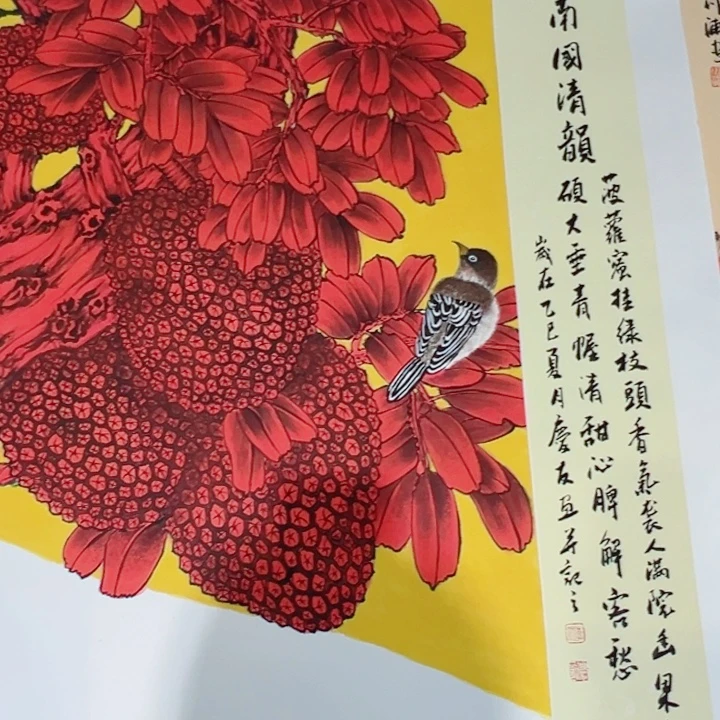 南國清韻
菠蘿蜜挂綠枝頭香氣袭人滿院幽果
碩大垂青幄清甜沁脾解客愁
歲在乙巳夏月慶友画并記之